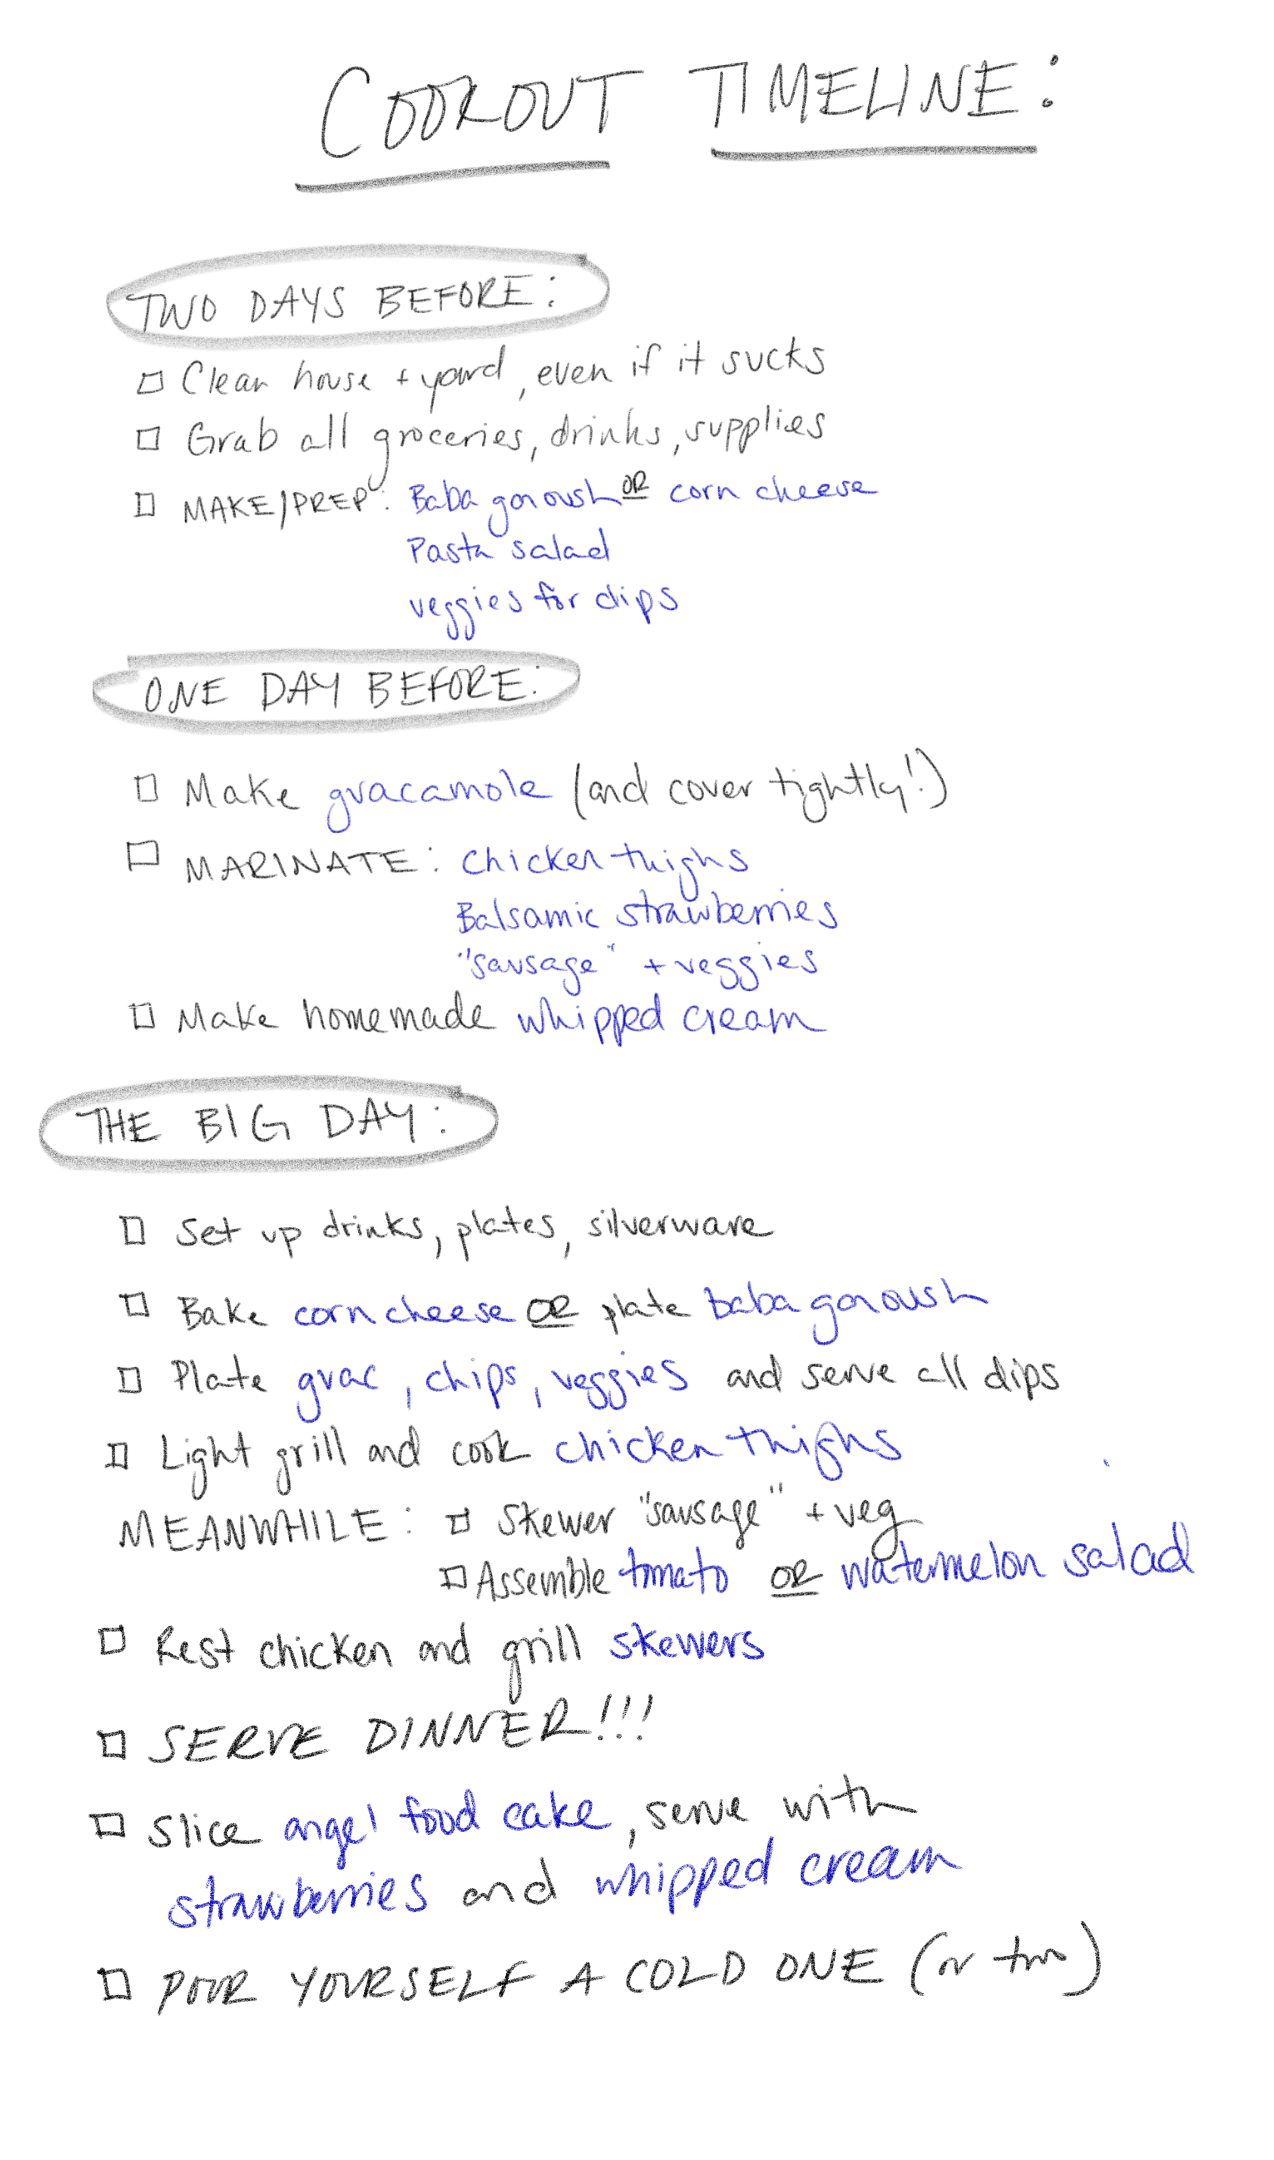 COOKOUT TIMELINE:
TWO DAYS BEFORE:
Clean house + yard, even if it sucks
Grab all groceries, drinks, supplies
MAKE/PREP: Baba ganoush OR corn cheese
Pasta salad
veggies for dips
ONE DAY BEFORE:
Make guacamole (and cover tightly!)
MARINATE: Chicken thighs
Balsamic strawberries
"sausage" + veggies
Make homemade whipped cream
THE BIG DAY:
Set up drinks, plates, silverware
Bake corn cheese OR plate baba ganoush
Plate guac, chips, veggies and serve all dips
Light grill and cook chicken thighs
MEANWHILE: Skewer "sausage" + veg
Assemble tomato OR watermelon salad
Rest chicken and grill skewers
SERVE DINNER!!!
Slice angel food cake, serve with
strawberries and whipped cream
POUR YOURSELF A COLD ONE (or two)